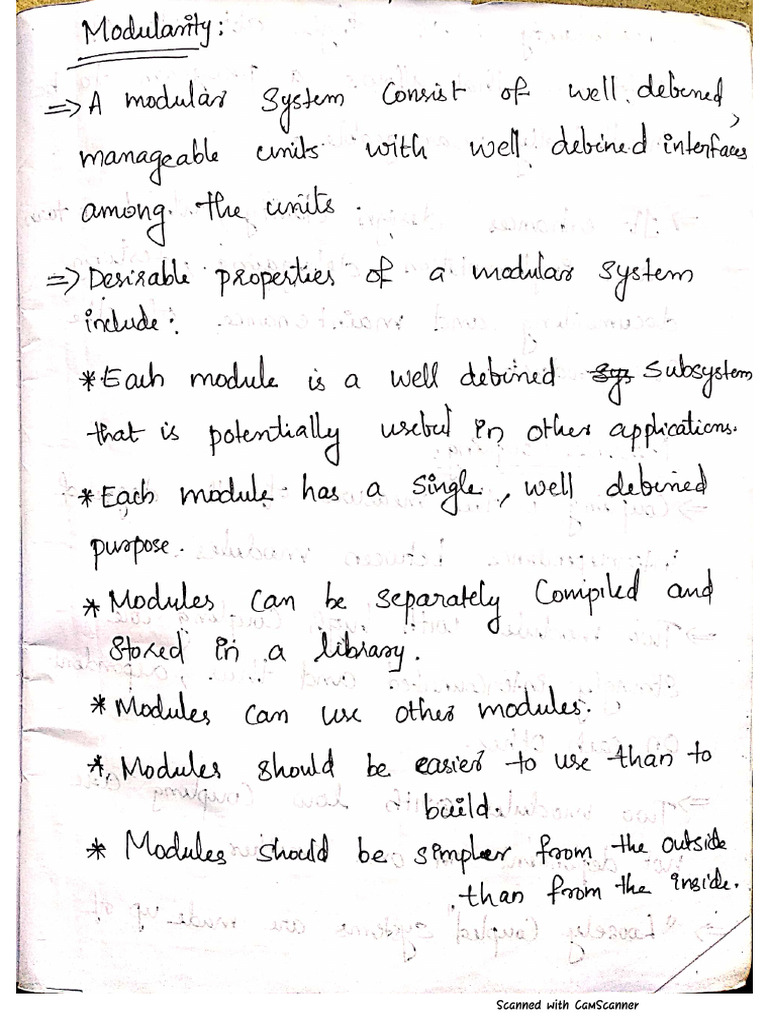 Modularity:
=> A modular system consist of well defined,
manageable units with well defined interfaces
among the units.
=> Desirable properties of a modular system
include:
* Each module is a well defined sys subsystem
that is potentially useful in other applications.
* Each module has a single, well defined
purpose.
* Modules can be separately compiled and
stored in a library.
* Modules can use other modules.
* Modules should be easier to use than to
build.
* Modules should be simpler from the outside
than from the inside.
Scanned with CamScanner